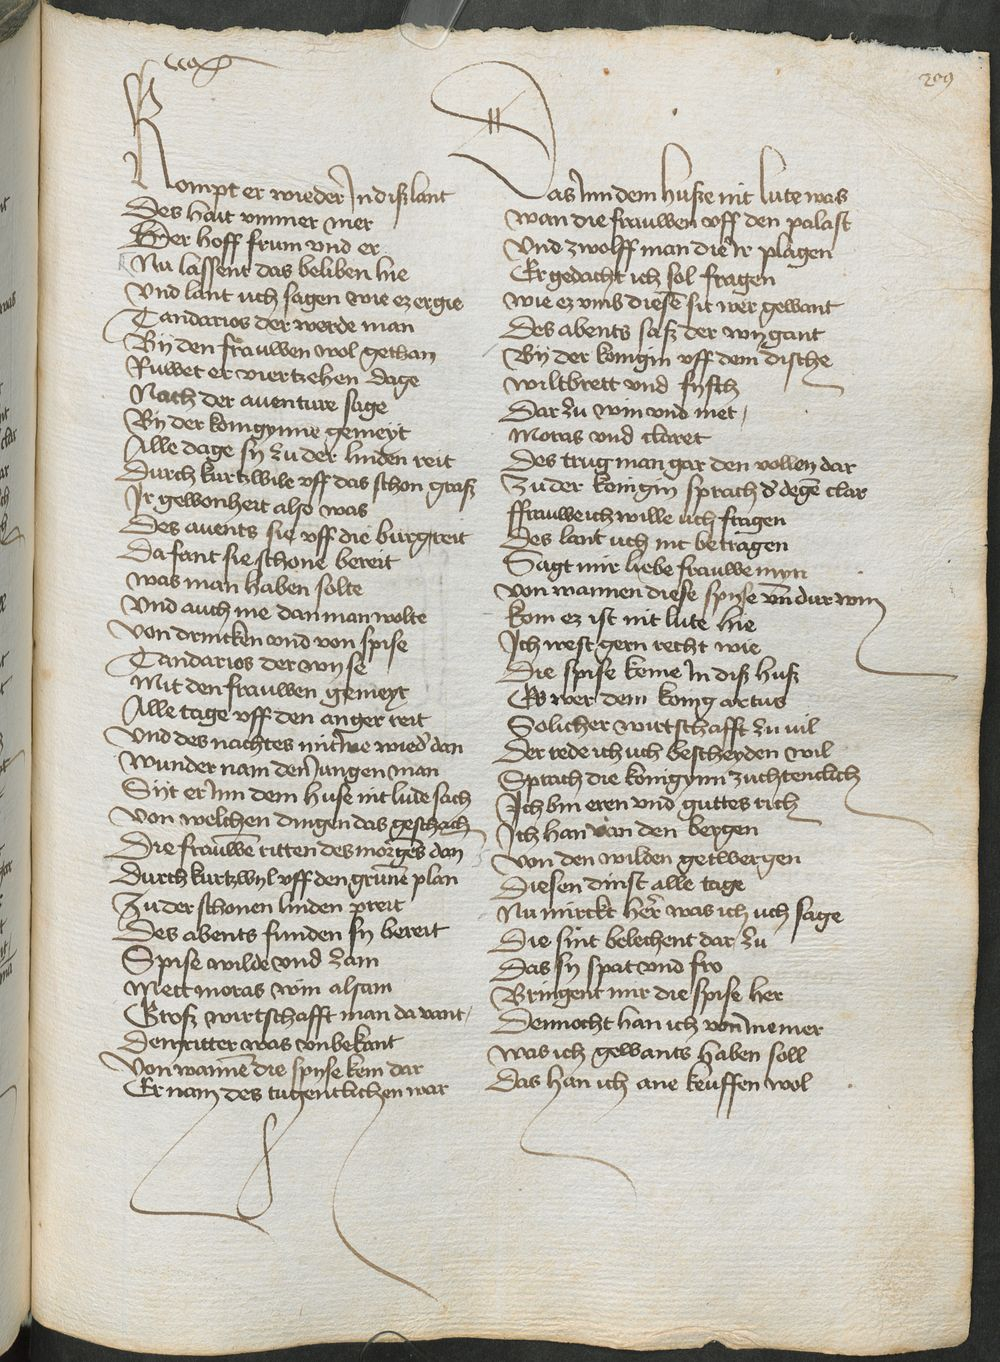 209
Kompt er wieder In diß lant
Des hait ymmer mer
Der hoff frum vnd er
Nu lassent das beliben hie
Vnd lant uch sagen wie ez ergie
Tandarios der werde man
Bij den frauwen wol gethan
Ruwet er viertzehen dage
Nach der auenture sage
Bij der konigynne gemeyt
Alle dage sy zu der linden reit
Durch kurtzwile vff das schon graß
Ir gewonheit also was
Des auents sie vff die burg reit
Da fant sie schone bereit
Was man haben solte
Vnd auch me dan man wolte
Von drincken vnd von spise
Tandarios der wyse
Mit den frauwen gemeyt
Alle tage vff den anger reit
Vnd des nachtes mit ine wied' dan
Wunder nam den Jungen man
Sijt er Inn dem huse nit lude sach
Von welchen dingen das geschach
Die frauwē ritten des morgēs dan
Durch kurtzwyl vff den grunē plan
Zu der schonen linden preit
Des abents funden sy bereit
Spise wilde vnd zam
Mett moras win alsam
Groß wirtschafft man da vant
Dem ritter was vnbekant
Von wannē die spyse kem dar
Er nam des tugentlichen war
Das Inn dem huße nit lute was
Wan die frauwen vff den palast
Vnd zwolff man die ir plagen
Er gedacht ich sol fragen
Wie ez vmb diesē sit wer gewant
Des abents saß der wygant
Bij der konigin vff dem dische
Wiltbrett vnd fysch
Dar zu win vnd met
Moras vnd claret
Des trug man gar den vollen dar
Zu der konigin sprach d' degē clar
Frauwe ich wille uch fragen
Des lant uch nit betragen
Sagt mir liebe frauwe myn
Von wannen diese spyse vnd dur win
Kom ez ist nit lute hie
Ich west gern recht wie
Die spise keme In diß huß
Es wer dem konig artus
Solicher wirtschafft zu vil
Der rede ich uch bescheyden wil
Sprach die konigynn zuchtenclich
Ich bin eren vnd guttes rich
Ich han van den bergen
Von den wilden getwergen
Diesen dinst alle tage
Nu mirckt her was ich uch sage
Die sint belechent dar zu
Das sy spat vnd fro
Bringent mir die spise her
Dennocht han ich von Ine mer
Was ich gewants haben soll
Das han ich ane keuffen wol